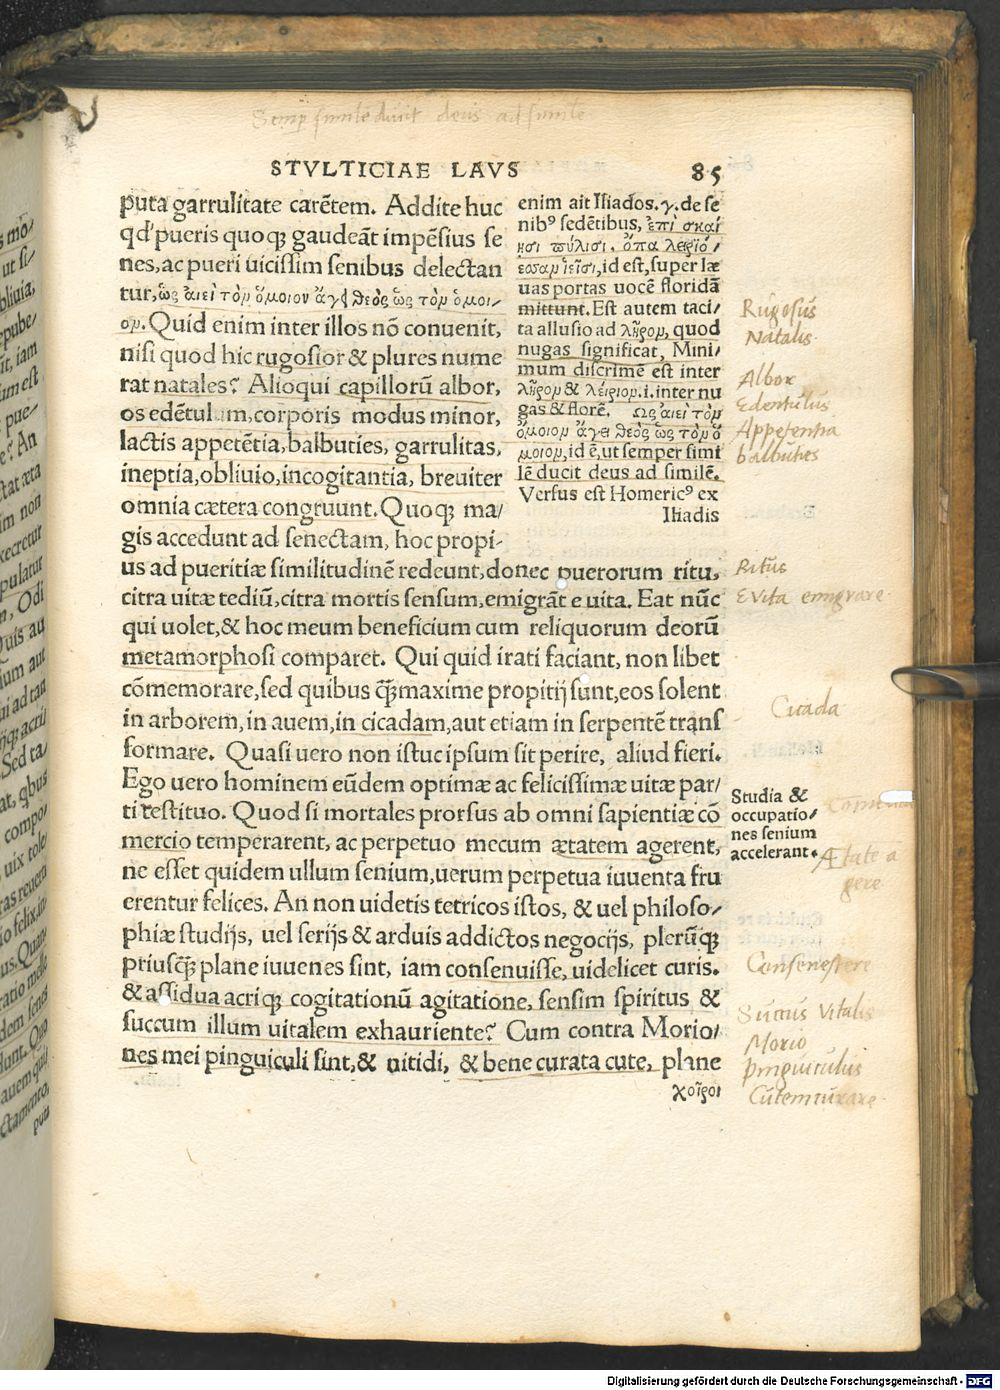 Semp simile ducit deus ad simile
STVLTICIAE LAVS 85
puta garrulitate carētem. Addite huc
qd' pueris quoqꝫ gaudeāt impēsius se
nes, ac pueri uicissim senibus delectan
tur, ὡς αἰεὶ τὸν ὅμοιον ἄγει θεὸς ὡς τὸν ὁμοι-
ον. Quid enim inter illos nō conuenit,
nisi quod hic rugosior & plures nume
rat natales? Alioqui capillorū albor,
os edētulum, corporis modus minor,
lactis appetētia, balbuties, garrulitas,
ineptia, obliuio, incogitantia, breuiter
omnia cætera congruunt. Quoqꝫ ma/
gis accedunt ad senectam, hoc propi-
us ad pueritiæ similitudinē redeunt, donec puerorum ritu,
citra uitæ tediū, citra mortis sensum, emigrāt e uita. Eat nūc
qui uolet, & hoc meum beneficium cum reliquorum deorū
metamorphosi comparet. Qui quid irati faciant, non libet
cōmemorare, sed quibus q̄ꝫ maxime propitij sunt, eos solent
in arborem, in auem, in cicadam, aut etiam in serpentē trans
formare. Quasi uero non istuc ipsum sit perire, aliud fieri.
Ego uero hominem eūdem optimæ ac felicissimæ uitæ par/
ti restituo. Quod si mortales prorsus ab omni sapientiæ cō
mercio temperarent, ac perpetuo mecum ætatem agerent,
ne esset quidem ullum senium, uerum perpetua iuuenta fru
erentur felices. An non uidetis tetricos istos, & uel philoso/
phiæ studijs, uel serijs & arduis addictos negocijs, plerūqꝫ
priusq̄ꝫ plane iuuenes sint, iam consenuisse, uidelicet curis.
& assidua acriqꝫ cogitationū agitatione, sensim spiritus &
succum illum uitalem exhauriente? Cum contra Morio/
nes mei pinguiculi sint, & nitidi, & bene curata cute, plane
χοῖροι
enim ait Iliados. γ. de se
nibꝰ sedētibus, ἐπὶ σκαί
ῃσι πύλῃσι. ὄπα λειριό/
εσσαν ἱεῖσι, id est, super læ
uas portas uocē floridā
mittunt. Est autem taci/
ta allusio ad λῆρον, quod
nugas significat, Mini/
mum discrimē est inter
λῆρον & λείριον .i. inter nu
gas & florē, Ὡς αἰεὶ τὸν
ὅμοιον ἄγει θεὸς ὡς τὸν ὁ
μοιον, id ē, ut semper simi
lē ducit deus ad similē.
Versus est Homericꝰ ex
Iliadis
Studia &
occupatio/
nes senium
accelerant.
Rugosus
Natalis
Albor
Edentulus
Appetentia
balbuties
Ritus
E vita emigrare
Cicada
Ætate a
gere
Consenescere
Succus Vitalis
Morio
Pinguiculus
Cutem curare
Digitalisierung gefördert durch die Deutsche Forschungsgemeinschaft - DFG